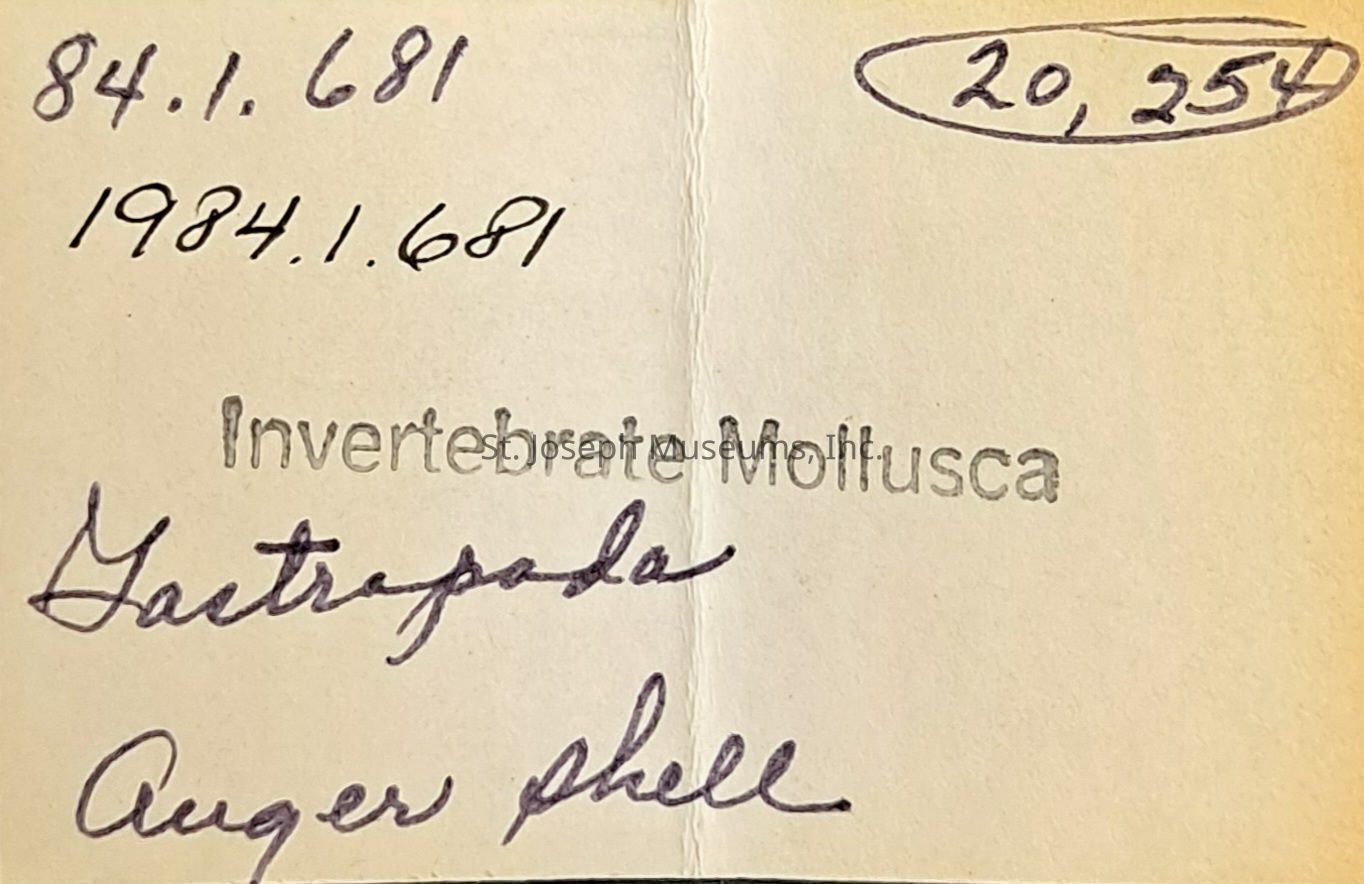 84.1.681
20,254
1984.1.681
Invertebrate Mollusca
St. Joseph Museums, Inc.
Gastropoda
Auger shell